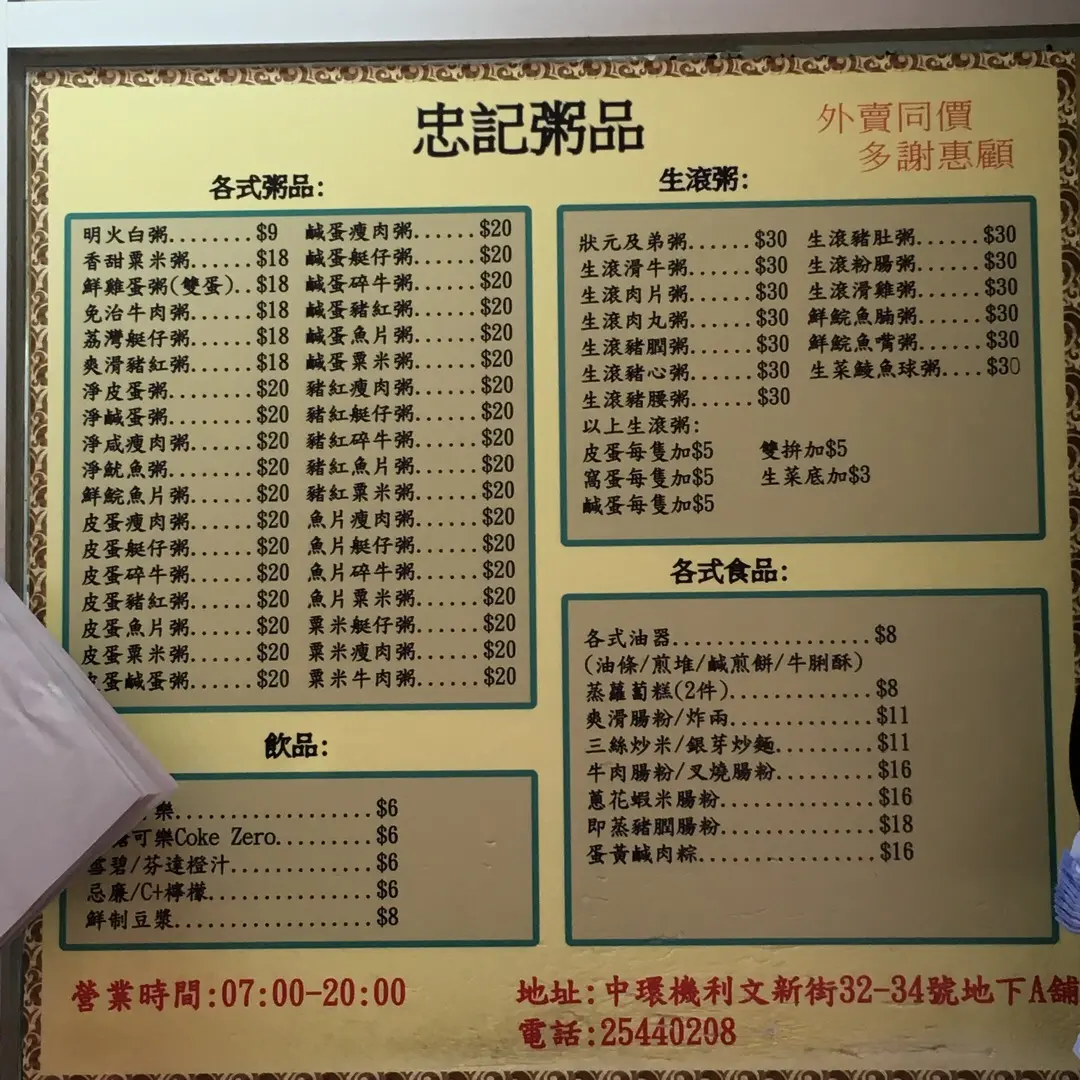 忠記粥品
外賣同價
多謝惠顧
各式粥品:
明火白粥........$9
香甜粟米粥......$18
鮮雞蛋粥(雙蛋)..$18
免治牛肉粥......$18
荔灣艇仔粥......$18
爽滑豬紅粥......$18
淨皮蛋粥........$20
淨鹹蛋粥........$20
淨咸瘦肉粥......$20
淨魷魚粥........$20
鮮鯇魚片粥......$20
皮蛋瘦肉粥......$20
皮蛋艇仔粥......$20
皮蛋碎牛粥......$20
皮蛋豬紅粥......$20
皮蛋魚片粥......$20
皮蛋粟米粥......$20
皮蛋鹹蛋粥......$20
鹹蛋瘦肉粥......$20
鹹蛋艇仔粥......$20
鹹蛋碎牛粥......$20
鹹蛋豬紅粥......$20
鹹蛋魚片粥......$20
鹹蛋粟米粥......$20
豬紅瘦肉粥......$20
豬紅艇仔粥......$20
豬紅碎牛粥......$20
豬紅魚片粥......$20
豬紅粟米粥......$20
魚片瘦肉粥......$20
魚片艇仔粥......$20
魚片碎牛粥......$20
魚片粟米粥......$20
粟米艇仔粥......$20
粟米瘦肉粥......$20
粟米牛肉粥......$20
生滾粥:
狀元及弟粥......$30
生滾滑牛粥......$30
生滾肉片粥......$30
生滾肉丸粥......$30
生滾豬膶粥......$30
生滾豬心粥......$30
生滾豬腰粥......$30
生滾豬肚粥......$30
生滾粉腸粥......$30
生滾滑雞粥......$30
鮮鯇魚腩粥......$30
鮮鯇魚嘴粥......$30
生菜鯪魚球粥....$30
以上生滾粥:
皮蛋每隻加$5 雙拚加$5
窩蛋每隻加$5 生菜底加$3
鹹蛋每隻加$5
飲品:
樂..................$6
可樂Coke Zero.......$6
雪碧/芬達橙汁.............$6
忌廉/C+檸檬...............$6
鮮制豆漿..................$8
各式食品:
各式油器...................$8
(油條/煎堆/鹹煎餅/牛脷酥)
蒸蘿蔔糕(2件)..............$8
爽滑腸粉/炸兩..............$11
三絲炒米/銀芽炒麵.........$11
牛肉腸粉/叉燒腸粉.........$16
蔥花蝦米腸粉...............$16
即蒸豬膶腸粉...............$18
蛋黃鹹肉粽..................$16
營業時間:07:00-20:00
地址:中環機利文新街32-34號地下A舖
電話:25440208